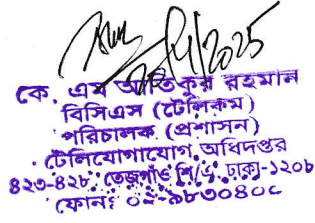 ২০/৭/2025
কে. এম আতিকুর রহমান
বিসিএস (টেলিকম)
পরিচালক (প্রশাসন)
টেলিযোগাযোগ অধিদপ্তর
৪২৩-৪২৮, তেজগাঁও শি/এ, ঢাকা-১২০৮
ফোনঃ ০২-৯৮৩০৪০৫